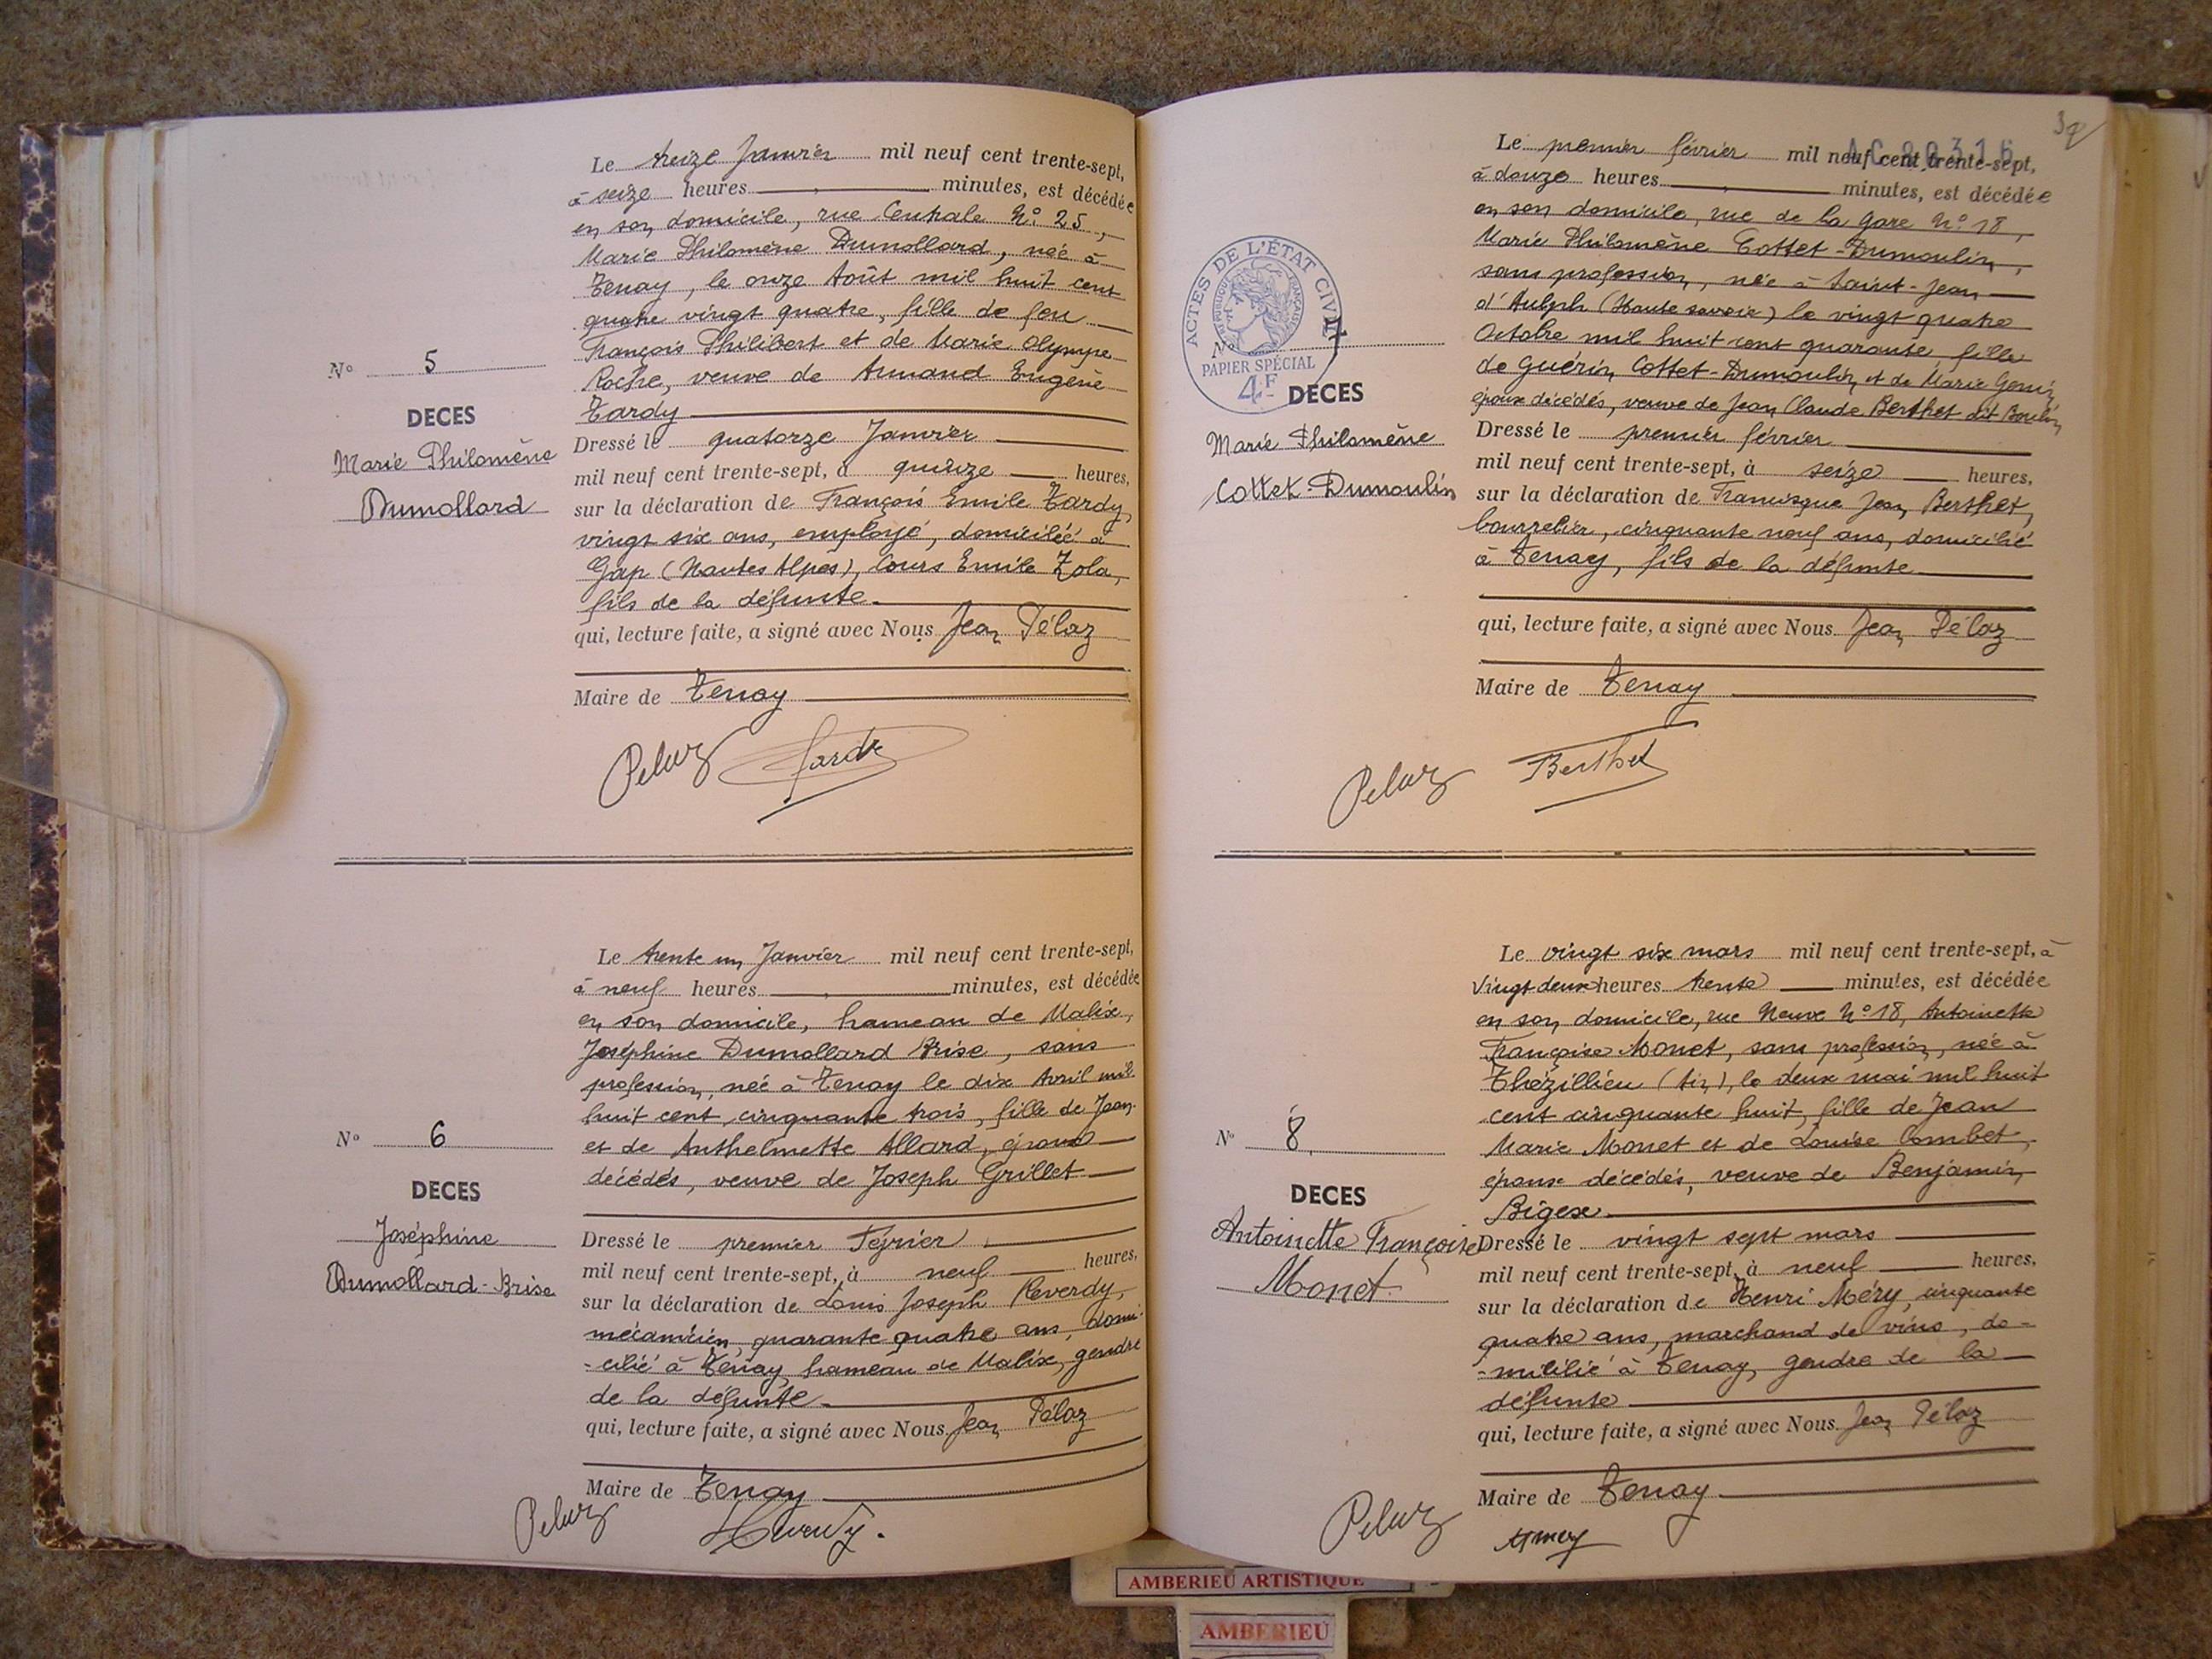 Le treize Janvier mil neuf cent trente-sept,
à seize heures minutes, est décédée
en son domicile, rue Centrale N° 25,
Marie Philomène Dumollard, née à
Tenay, le onze Août mil huit cent
quatre vingt quatre, fille de feu
François Philibert et de Marie Olympe
Roche, veuve de Armand Eugène
Tardy
N° 5
DECES
Marie Philomène
Dumollard
Dressé le quatorze Janvier
mil neuf cent trente-sept, à quinze heures,
sur la déclaration de François Emile Tardy,
vingt six ans, employé, domicilié à
Gap (Hautes Alpes), Cours Emile Zola,
fils de la défunte.
qui, lecture faite, a signé avec Nous Jean Pélaz
Maire de Tenay
Pelaz Tardy
Le trente un Janvier mil neuf cent trente-sept,
à neuf heures minutes, est décédée
en son domicile, hameau de Malix,
Joséphine Dumollard Brise, sans
profession, née à Tenay le dix Avril mil
huit cent cinquante trois, fille de Jean
et de Anthelmette Allard, époux
décédés, veuve de Joseph Grillet
N° 6
DECES
Joséphine
Dumollard-Brise
Dressé le premier Février
mil neuf cent trente-sept, à neuf heures,
sur la déclaration de Louis Joseph Reverdy,
mécanicien, quarante quatre ans, domi-
-cilié à Tenay, hameau de Malix, gendre
de la défunte.
qui, lecture faite, a signé avec Nous Jean Pélaz
Maire de Tenay
Pelaz
AC 20316
Le premier février mil neuf cent trente-sept,
à douze heures minutes, est décédée
en son domicile, rue de la Gare N° 18,
Marie Philomène Cottet-Dumoulin,
sans profession, née à Saint-Jean
d'Aulph (Haute Savoie) le vingt quatre
Octobre mil huit cent quarante, fille
de Guérin Cottet-Dumoulin et de Marie
époux décédés, veuve de Jean Claude Berthet dit Boulin
ACTES DE L'ÉTAT CIVIL
RÉPUBLIQUE FRANÇAISE
PAPIER SPÉCIAL
4F
N°
DECES
Marie Philomène
Cottet-Dumoulin
Dressé le premier février
mil neuf cent trente-sept, à seize heures,
sur la déclaration de Francisque Jean Berthet,
bourrelier, cinquante neuf ans, domicilié
à Tenay, fils de la défunte
qui, lecture faite, a signé avec Nous Jean Pélaz
Maire de Tenay
Pelaz Berthet
Le vingt six mars mil neuf cent trente-sept, à
vingt deux heures trente minutes, est décédée
en son domicile, rue Neuve N° 18, Antoinette
Françoise Monet, sans profession, née à
Thézillieu (Ain), le deux mai mil huit
cent cinquante huit, fille de Jean
Marie Monet et de Louise Combet,
époux décédés, veuve de Benjamin
Bigex.
N° 8
DECES
Antoinette Françoise
Monet
Dressé le vingt sept mars
mil neuf cent trente-sept, à neuf heures,
sur la déclaration de Henri Méry, cinquante
quatre ans, marchand de vins, do-
-micilié à Tenay, gendre de la
défunte
qui, lecture faite, a signé avec Nous Jean Pélaz
Maire de Tenay
Pelaz
AMBERIEU ARTISTIQUE
AMBERIEU